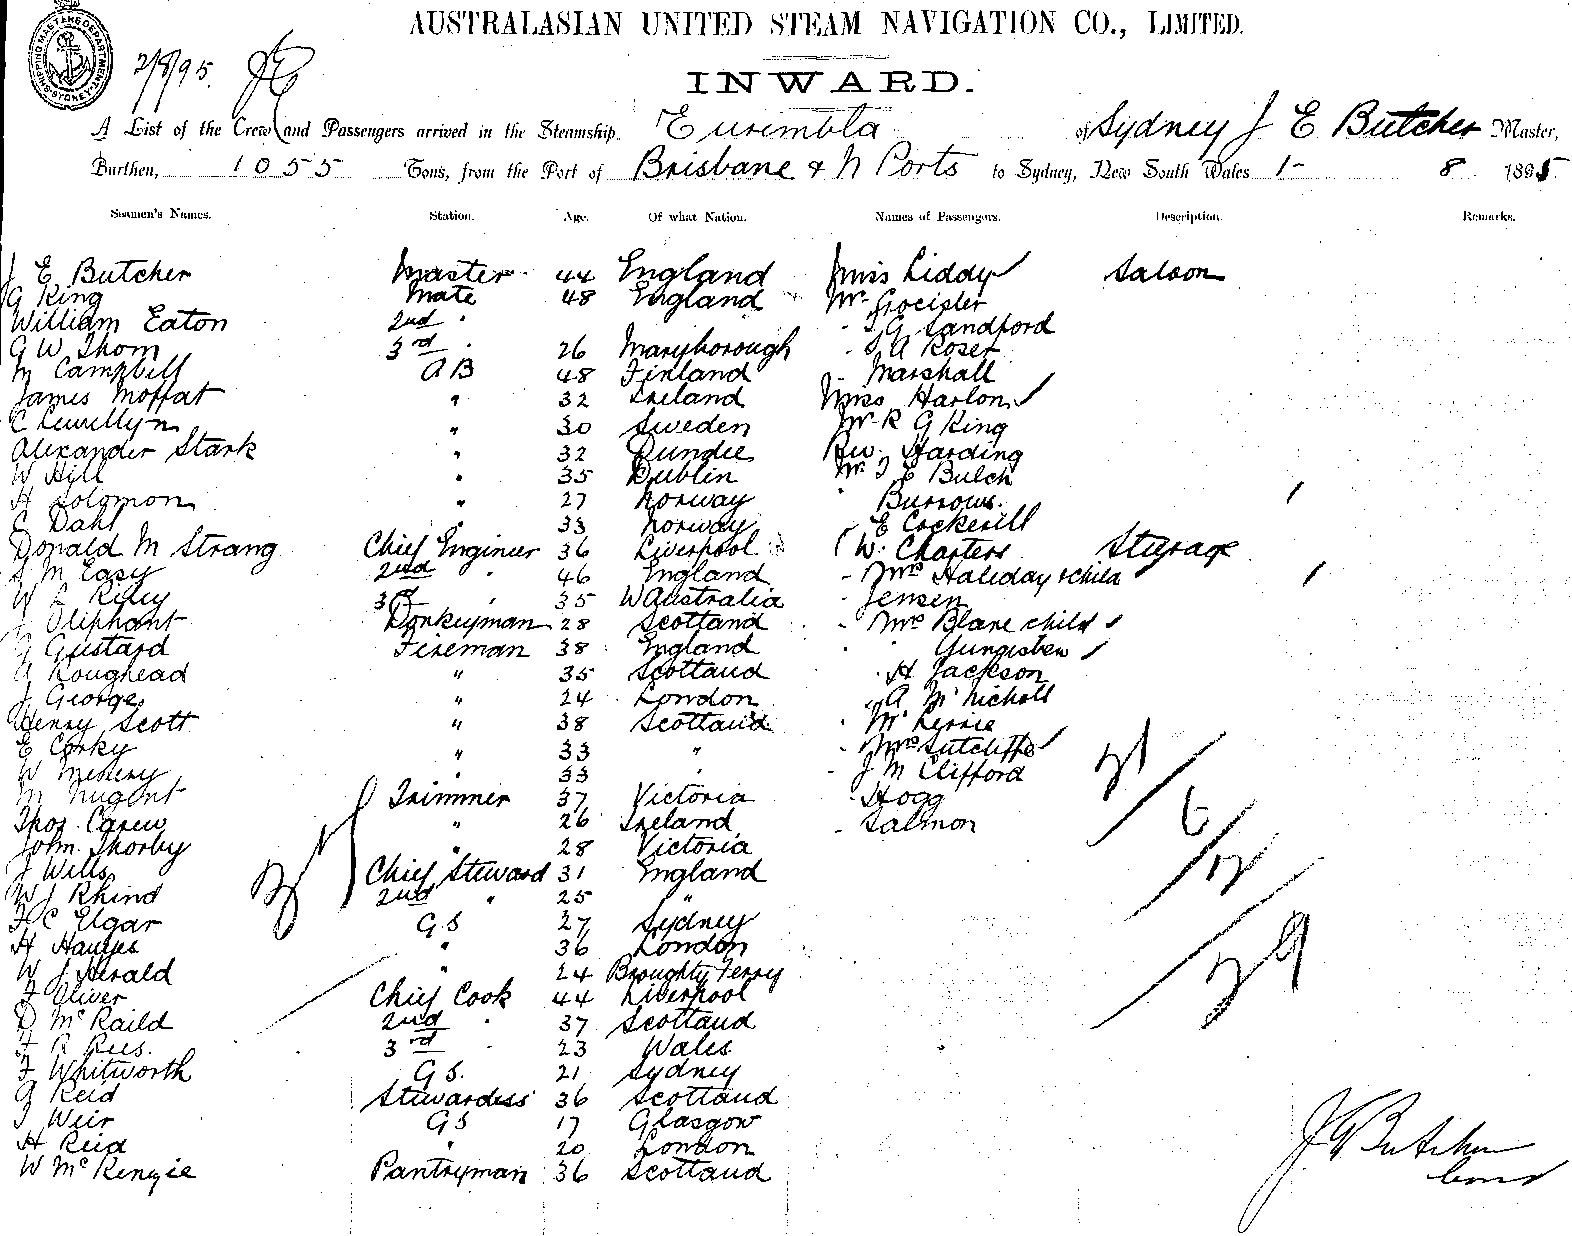 AUSTRALASIAN UNITED STEAM NAVIGATION CO., LIMITED.
SHIPPING MASTERS DEPARTMENT SYDNEY
2/8/95.
INWARD.
A List of the Crew and Passengers arrived in the Steamship Eurimbla of Sydney J E Butcher Master,
Burthen, 1055 Tons, from the Port of Brisbane & N Ports to Sydney, New South Wales 1- 8 1895
Seamen's Names. Station. Age. Of what Nation. Names of Passengers. Description. Remarks.
J E Butcher Master 44 England Miss Liddy Saloon
G King Mate 48 England Mr
William Eaton 2nd " " G Sandford
G W Thom 3rd " 26 Maryborough " A Roser
M Campbell A B 48 Finland " Marshall
James Moffat " 32 Ireland Miss Harlon
C Lewellyn " 30 Sweden Mr R G King
Alexander Stark " 32 Dundee Rev. Harding
W Hill " 35 Dublin Mr E Bulch
H Solomon " 27 Norway " Burrows.
Dahl " 33 Norway E Cockerill
Donald M Strang Chief Engineer 36 Liverpool W. Charters Steerage
M Easy 2nd " 46 England " Mrs Haliday & child
W Riley 3rd " 35 W Australia " Jensen
J Oliphant Donkeyman 28 Scotland " Mrs Blane child
G Gustard Fireman 38 England "
Roughead " 35 Scotland " H Jackson
J George " 24 London " A McNicholl
Henry Scott " 38 Scotland "
E Corky " 33 " " Mrs Sutcliffe
W " 33 " J M Clifford
M Nugent Trimmer 37 Victoria " Hogg
Thos. Carew " 26 Ireland " Salmon
John Thorby " 28 Victoria
J Wills Chief Steward 31 England
W J Rhind 2nd " 25 "
F C Elgar G S 27 Sydney
H Hawyes " 36 London
W J Herald " 24 Broughty Ferry
F Oliver Chief Cook 44 Liverpool
D McRaild 2nd " 37 Scotland
F R Rees. 3rd " 23 Wales
F Whitworth G S. 21 Sydney
G Reid Stewardess 36 Scotland
J Weir G S 17 Glasgow
H Reid " 20 London
W McKenzie Pantryman 36 Scotland
J E Butcher